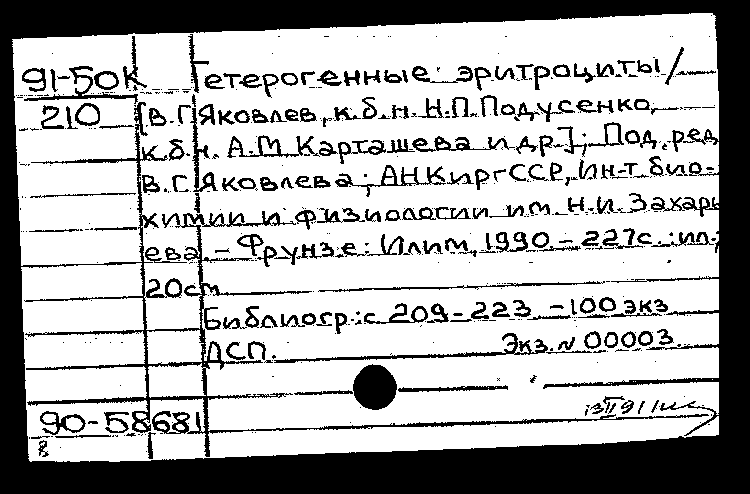 91-50К Гетерогенные эритроциты/
210 [В.Г.Яковлев, к.б.н. Н.П.Подусенко,
к.б.н. А.М.Карташева и др.]; Под. ред
В.Г.Яковлева; АН КиргССР, Ин-т био-
химии и физиологии им. Н.И. Захарь
ева. – Фрунзе: Илим, 1990. – 227с. : ил.;
20см
Библиогр.: с. 209-223. – 100 экз
ДСП. Экз. N 00003.
90-58681
13 II 91
8